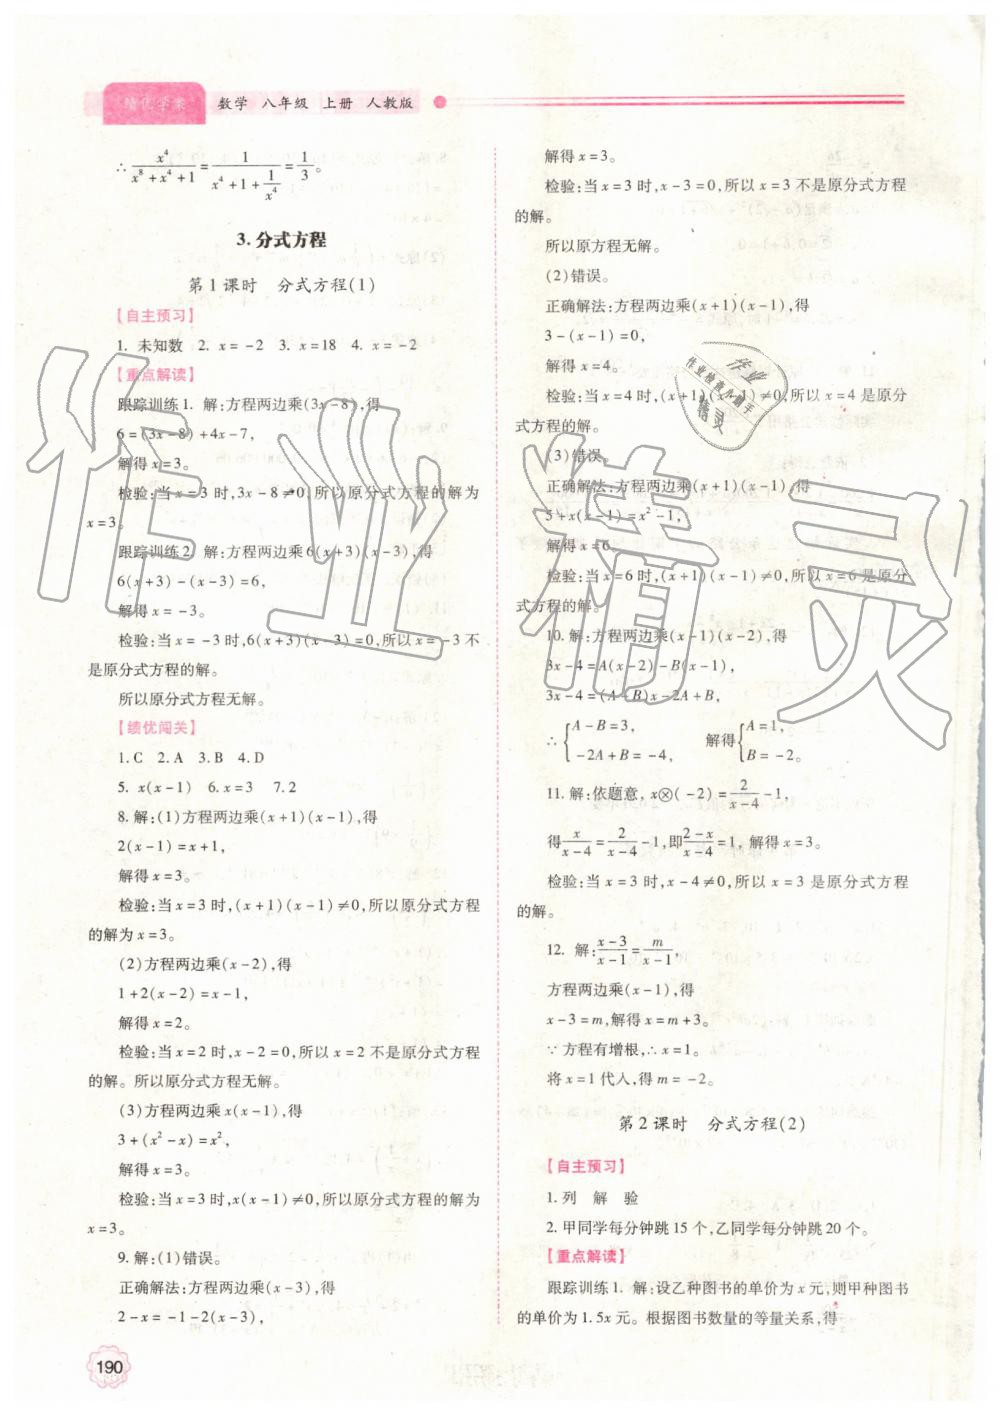 绩优学案 数学 八年级 上册 人教版
∴ x⁴/(x⁸+x⁴+1) = 1/(x⁴+1+1/x⁴) = 1/3。
3. 分式方程
第1课时 分式方程(1)
【自主预习】
1. 未知数 2. x=-2 3. x=18 4. x=-2
【重点解读】
跟踪训练1. 解:方程两边乘(3x-8),得
6=(3x-8)+4x-7,
解得x=3。
检验:当x=3时,3x-8≠0,所以原分式方程的解为
x=3。
跟踪训练2. 解:方程两边乘6(x+3)(x-3),得
6(x+3)-(x-3)=6,
解得x=-3。
检验:当x=-3时,6(x+3)(x-3)=0,所以x=-3不
是原分式方程的解。
所以原分式方程无解。
【绩优闯关】
1.C 2.A 3.B 4.D
5. x(x-1) 6. x=3 7. 2
8. 解:(1)方程两边乘(x+1)(x-1),得
2(x-1)=x+1,
解得x=3。
检验:当x=3时,(x+1)(x-1)≠0,所以原分式方程
的解为x=3。
(2)方程两边乘(x-2),得
1+2(x-2)=x-1,
解得x=2。
检验:当x=2时,x-2=0,所以x=2不是原分式方程
的解。所以原分式方程无解。
(3)方程两边乘x(x-1),得
3+(x²-x)=x²,
解得x=3。
检验:当x=3时,x(x-1)≠0,所以原分式方程的解为
x=3。
9. 解:(1)错误。
正确解法:方程两边乘(x-3),得
2-x=-1-2(x-3),
190
解得x=3。
检验:当x=3时,x-3=0,所以x=3不是原分式方程
的解。
所以原方程无解。
(2)错误。
正确解法:方程两边乘(x+1)(x-1),得
3-(x-1)=0,
解得x=4。
检验:当x=4时,(x+1)(x-1)≠0,所以x=4是原分
式方程的解。
(3)错误。
正确解法:方程两边乘(x+1)(x-1),得
5+x(x-1)=x²-1,
解得x=6。
检验:当x=6时,(x+1)(x-1)≠0,所以x=6是原分
式方程的解。
10. 解:方程两边乘(x-1)(x-2),得
3x-4=A(x-2)-B(x-1),
3x-4=(A-B)x-2A+B,
∴ {A-B=3, -2A+B=-4, 解得 {A=1, B=-2。
11. 解:依题意,x⊗(-2)=2/(x-4)-1,
得x/(x-4)=2/(x-4)-1,即(2-x)/(x-4)=1,解得x=3。
检验:当x=3时,x-4≠0,所以x=3是原分式方程
的解。
12. 解:(x-3)/(x-1)=m/(x-1),
方程两边乘(x-1),得
x-3=m,解得x=m+3。
∵方程有增根,∴x=1。
将x=1代入,得m=-2。
第2课时 分式方程(2)
【自主预习】
1. 列 解 验
2. 甲同学每分钟跳15个,乙同学每分钟跳20个。
【重点解读】
跟踪训练1. 解:设乙种图书的单价为x元,则甲种图书
的单价为1.5x元。根据图书数量的等量关系,得
作业精灵
作业
作业检查小助手
精灵